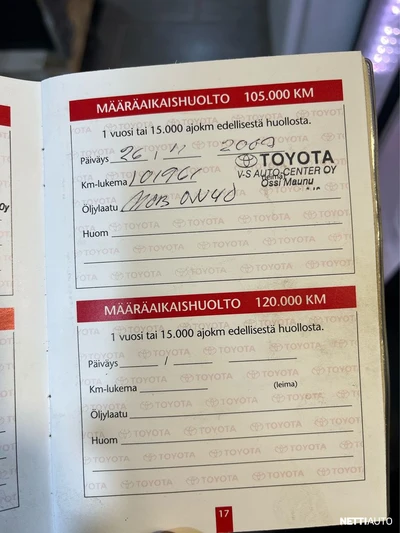 MÄÄRÄAIKAISHUOLTO 105.000 KM
1 vuosi tai 15.000 ajokm edellisestä huollosta.
Päiväys 26 / 11 2009
TOYOTA
V-S AUTO-CENTER OY
Ossi Maunu
Km-lukema 101961
Öljylaatu MOB 0W40
Huom
MÄÄRÄAIKAISHUOLTO 120.000 KM
1 vuosi tai 15.000 ajokm edellisestä huollosta.
Päiväys /
Km-lukema
(leima)
Öljylaatu
Huom
17
NETTIAUTO